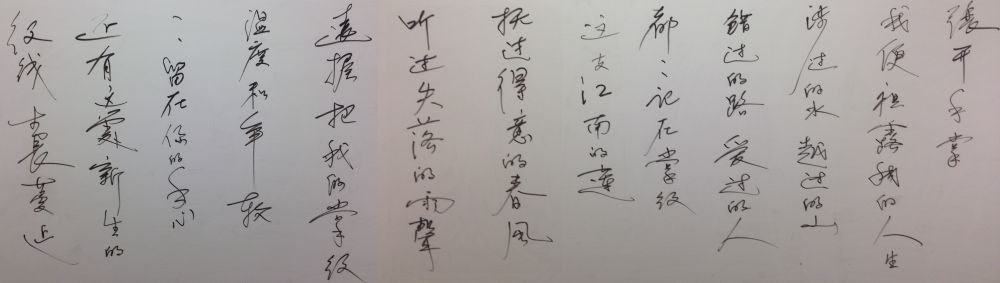 張开手掌
我便袒露我的人生
涉过的水 越过的山
错过的路 爱过的人
都一一记在掌纹
这支江南的莲
抚过得意的春风
听过失落的雨聲
握把我的掌纹
温度和年
一一留在你的手心
还有这处新生的
纹线 蔓延